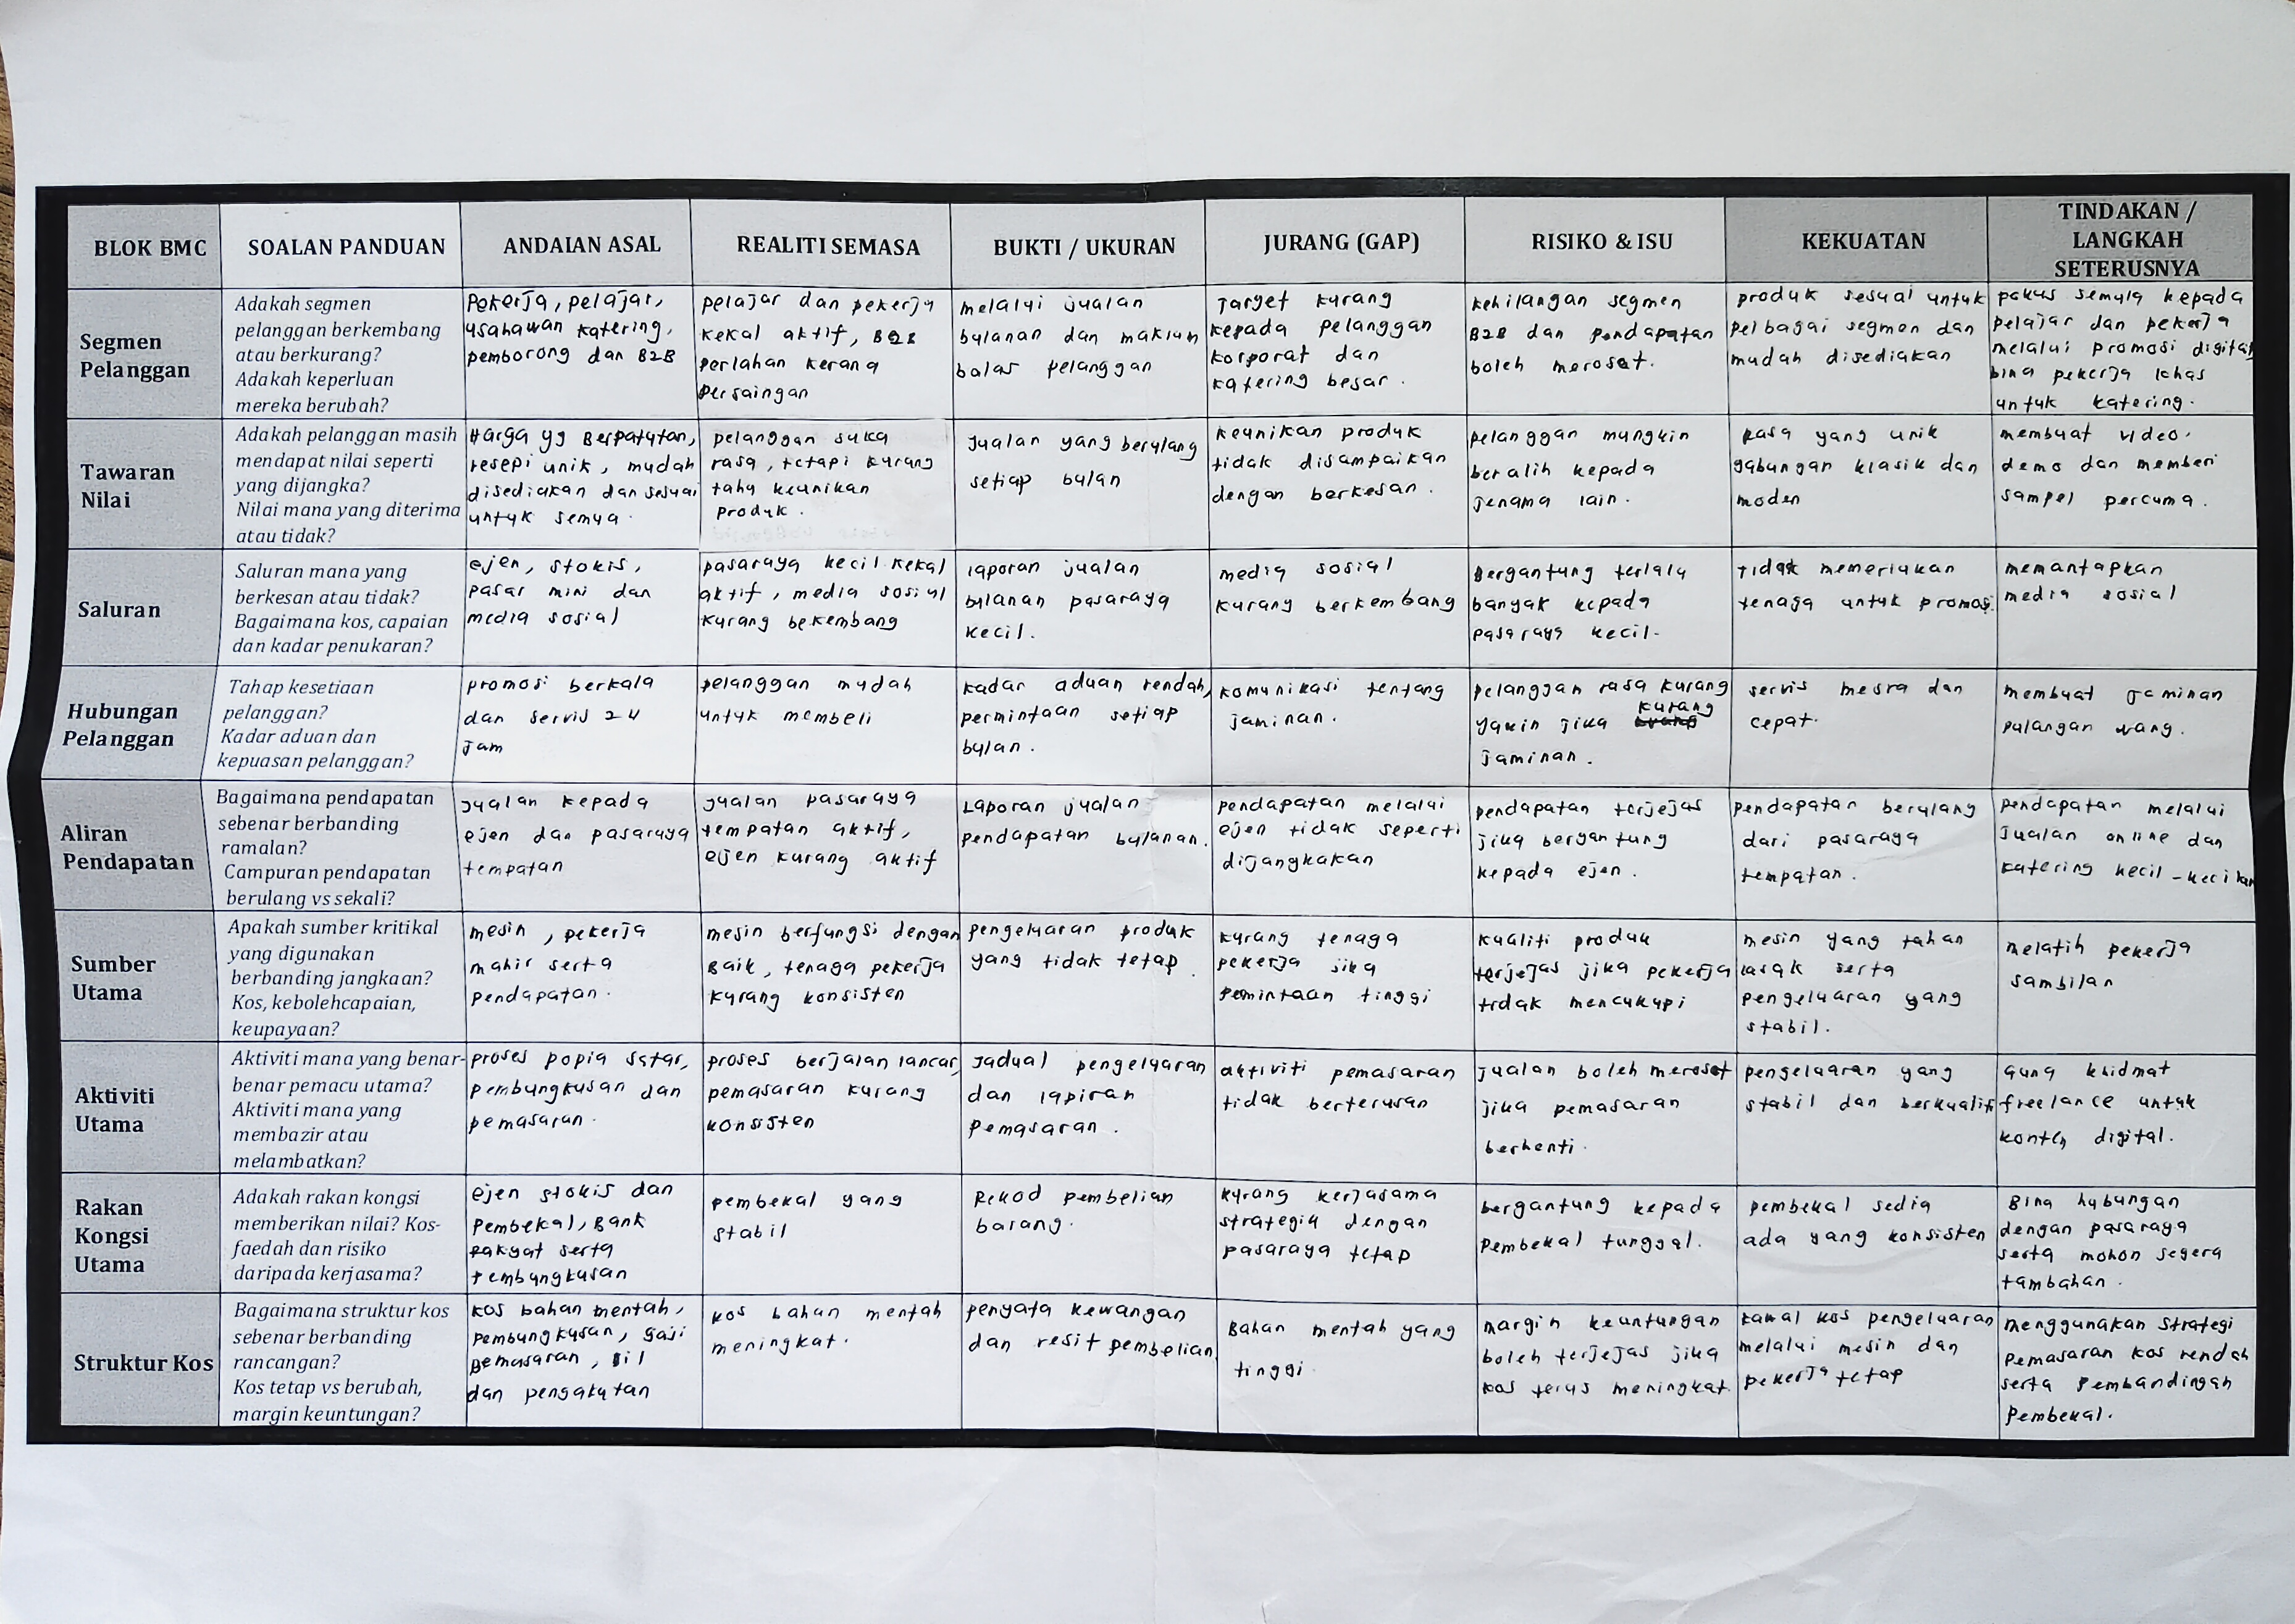 BLOK BMC
SOALAN PANDUAN
ANDAIAN ASAL
REALITI SEMASA
BUKTI / UKURAN
JURANG (GAP)
RISIKO & ISU
KEKUATAN
TINDAKAN /
LANGKAH
SETERUSNYA
Segmen
Pelanggan
Adakah segmen
pelanggan berkembang
atau berkurang?
Adakah keperluan
mereka berubah?
Pekerja, pelajar,
usahawan katering,
pemborong dan B2B
pelajar dan pekerja
kekal aktif, B2B
perlahan kerana
persaingan
melalui jualan
bulanan dan maklum
balas pelanggan
Target kurang
kepada pelanggan
korporat dan
katering besar.
kehilangan segmen
B2B dan pendapatan
boleh merosot.
produk sesuai untuk
pelbagai segmen dan
mudah disediakan
pokus semula kepada
pelajar dan pekerja
melalui promosi digital
bina pekerja khas
untuk katering.
Tawaran
Nilai
Adakah pelanggan masih
mendapat nilai seperti
yang dijangka?
Nilai mana yang diterima
atau tidak?
Harga yg Berpatutan,
resepi unik, mudah
disediakan dan sesuai
untuk semua.
pelanggan suka
rasa, tetapi kurang
tahu keunikan
produk.
Jualan yang berulang
setiap bulan
keunikan produk
tidak disampaikan
dengan berkesan.
pelanggan mungkin
beralih kepada
jenama lain.
Rasa yang unik
gabungan klasik dan
moden
membuat video
demo dan memberi
sampel percuma.
Saluran
Saluran mana yang
berkesan atau tidak?
Bagaimana kos, capaian
dan kadar penukaran?
ejen, stokis,
pasar mini dan
media sosial
pasaraya kecil kekal
aktif, media sosial
kurang bekembang
laporan jualan
bulanan pasaraya
kecil.
media sosial
kurang berkembang
Bergantung terlalu
banyak kepada
pasaraya kecil.
tidak memerlukan
tenaga untuk promosi
memantapkan
media sosial
Hubungan
Pelanggan
Tahap kesetiaan
pelanggan?
Kadar aduan dan
kepuasan pelanggan?
promosi berkala
dan servis 24
jam
pelanggan mudah
untuk membeli
kadar aduan rendah,
permintaan setiap
bulan.
komunikasi tentang
jaminan.
pelanggan rasa kurang
yakin jika kurang
jaminan.
servis mesra dan
cepat.
membuat jaminan
pulangan wang.
Aliran
Pendapatan
Bagaimana pendapatan
sebenar berbanding
ramalan?
Campuran pendapatan
berulang vs sekali?
Jualan kepada
ejen dan pasaraya
tempatan
Jualan pasaraya
tempatan aktif,
ejen kurang aktif
Laporan jualan
pendapatan bulanan.
pendapatan melalui
ejen tidak seperti
dijangkakan
pendapatan terjejas
jika bergantung
kepada ejen.
pendapatan berulang
dari pasaraya
tempatan.
pendapatan melalui
jualan online dan
katering kecil-kecilan
Sumber
Utama
Apakah sumber kritikal
yang digunakan
berbanding jangkaan?
Kos, kebolehcapaian,
keupayaan?
mesin, pekerja
mahir serta
pendapatan.
mesin berfungsi dengan
Baik, tenaga pekerja
kurang konsisten
pengeluaran produk
yang tidak tetap.
kurang tenaga
pekerja jika
pemintaan tinggi
kualiti produk
terjejas jika pekerja
tidak mencukupi
mesin yang tahan
lasak serta
pengeluaran yang
stabil.
melatih pekerja
sambilan
Aktiviti
Utama
Aktiviti mana yang benar-
benar pemacu utama?
Aktiviti mana yang
membazir atau
melambatkan?
proses popia satar,
pembungkusan dan
pemasaran.
proses berjalan lancar,
pemasaran kurang
konsisten
Jadual pengeluaran
dan lapiran
pemasaran.
aktiviti pemasaran
tidak berterusan
jualan boleh merosot
jika pemasaran
berhenti.
pengeluaran yang
stabil dan berkualiti
Guna khidmat
freelance untuk
konten digital.
Rakan
Kongsi
Utama
Adakah rakan kongsi
memberikan nilai? Kos-
faedah dan risiko
daripada kerjasama?
ejen stokis dan
pembekal, Bank
Rakyat serta
pembungkusan
pembekal yang
stabil
Rekod pembelian
barang.
kurang kerjasama
strategik dengan
pasaraya tetap
bergantung kepada
pembekal tunggal.
pembekal sedia
ada yang konsisten
Bina hubungan
dengan pasaraya
serta mohon segera
tambahan.
Struktur Kos
Bagaimana struktur kos
sebenar berbanding
rancangan?
Kos tetap vs berubah,
margin keuntungan?
kos bahan mentah,
pembungkusan, gaji
pemasaran, bil
dan pengakutan
kos bahan mentah
meningkat.
penyata kewangan
dan resit pembelian
Bahan mentah yang
tinggi.
margin keuntungan
boleh terjejas jika
kos terus meningkat.
kawal kos pengeluaran
melalui mesin dan
pekerja tetap
menggunakan strategi
pemasaran kos rendah
serta pembandingan
pembekal.